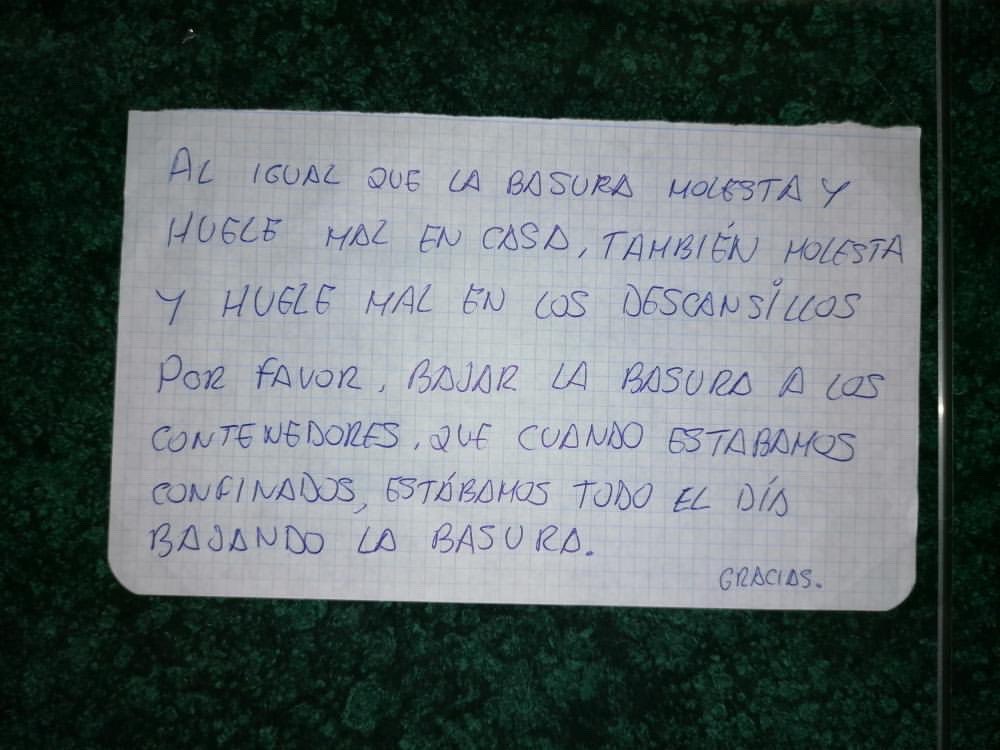 AL IGUAL QUE LA BASURA MOLESTA Y
HUELE MAL EN CASA, TAMBIÉN MOLESTA
Y HUELE MAL EN LOS DESCANSILLOS
POR FAVOR, BAJAR LA BASURA A LOS
CONTENEDORES, QUE CUANDO ESTABAMOS
CONFINADOS, ESTÁBAMOS TODO EL DÍA
BAJANDO LA BASURA.
GRACIAS.